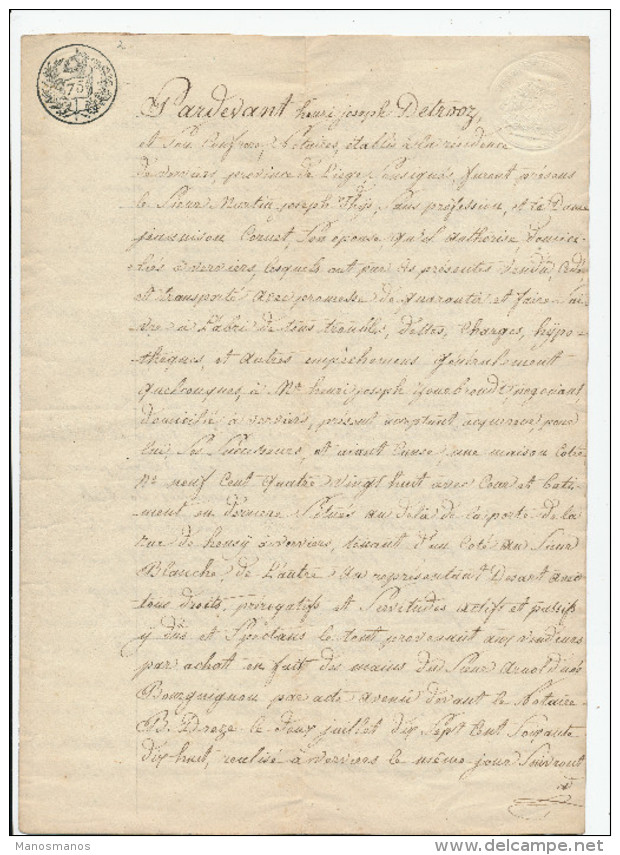 75
Pardevant henri joseph Detrooz,
et son Confrere, Notaires, établis à la résidence
de verviers, province de Liège, soussignés, furent présens
le Sieur Martin joseph Thys, sans profession, et la Dame
jeannison Cornet, son epouse qu'il authorise domici-
liés à verviers, lesquels ont par ces présentes vendu, cédé
et transporté avec promesse de garantir et faire jou-
ir à l'abri de tous troubles, dettes, charges, hÿpo-
theques, et autres empêchemens généralement
quelconques, à Mr henri joseph négociant,
domicilié à verviers, présent acceptant acquereur, pour
lui ses Successeurs, et aiant cause, une maison cotée
No neuf cent quatre vingt huit avec Cour et bati-
ment en derriere Situés au delà de la porte de la
rue de à verviers, tenant d'un coté au Sieur
Blanche, de L'autre au représentant avec
tous droits, prérogatifs et Servitudes actifs et passifs
y dûs et Spectans le tout provenant aux vendeurs
par achatt en fait des mains du Sieur Arnold
Bourguignon par acte avenu devant le Notaire
B. Dreze le deux juillet dix Sept Cent Soixante
dix huit, réalisé à verviers le même jour Suivront
Manosmanos
delcampe.net